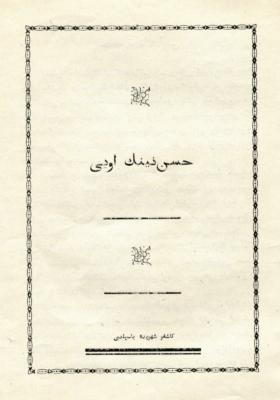 حسن نینك اوبی
كاشغر شهریده باسیلدی